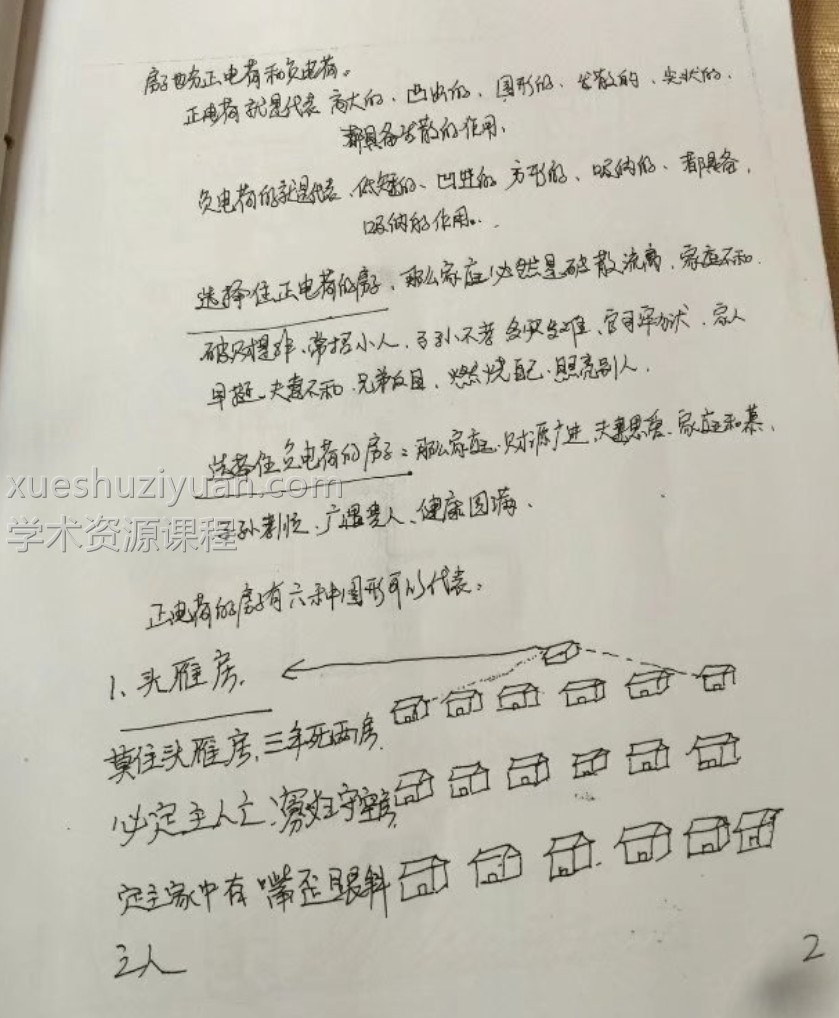 房子也分正电荷和负电荷。
正电荷就是代表 高大的、凸出的、圆形的、发散的、尖状的、
都具备发散的作用、
负电荷的就是代表、低矮的、凹进的 方形的、吸纳的、都具备、
吸纳的作用。
选择住正电荷的房子、那么家庭必然是破散流离、家庭不和、
破财、常招小人、子孙不孝 多灾多难、官司牢狱、家人
早逝、夫妻不和、兄弟反目、燃烧自己、照亮别人、
选择住负电荷的房子：那么家庭、财源广进、夫妻恩爱、家庭和慕、
xueshuziyuan.com
子孙孝顺、广遇贵人、健康圆满、
学术资源课程
正电荷的房子有六种图形可以代表：
1、头雁房、
莫住头雁房、三年死两房、
必定主人亡、寡妇守空房、
定主家中有 嘴歪眼斜
之人
2